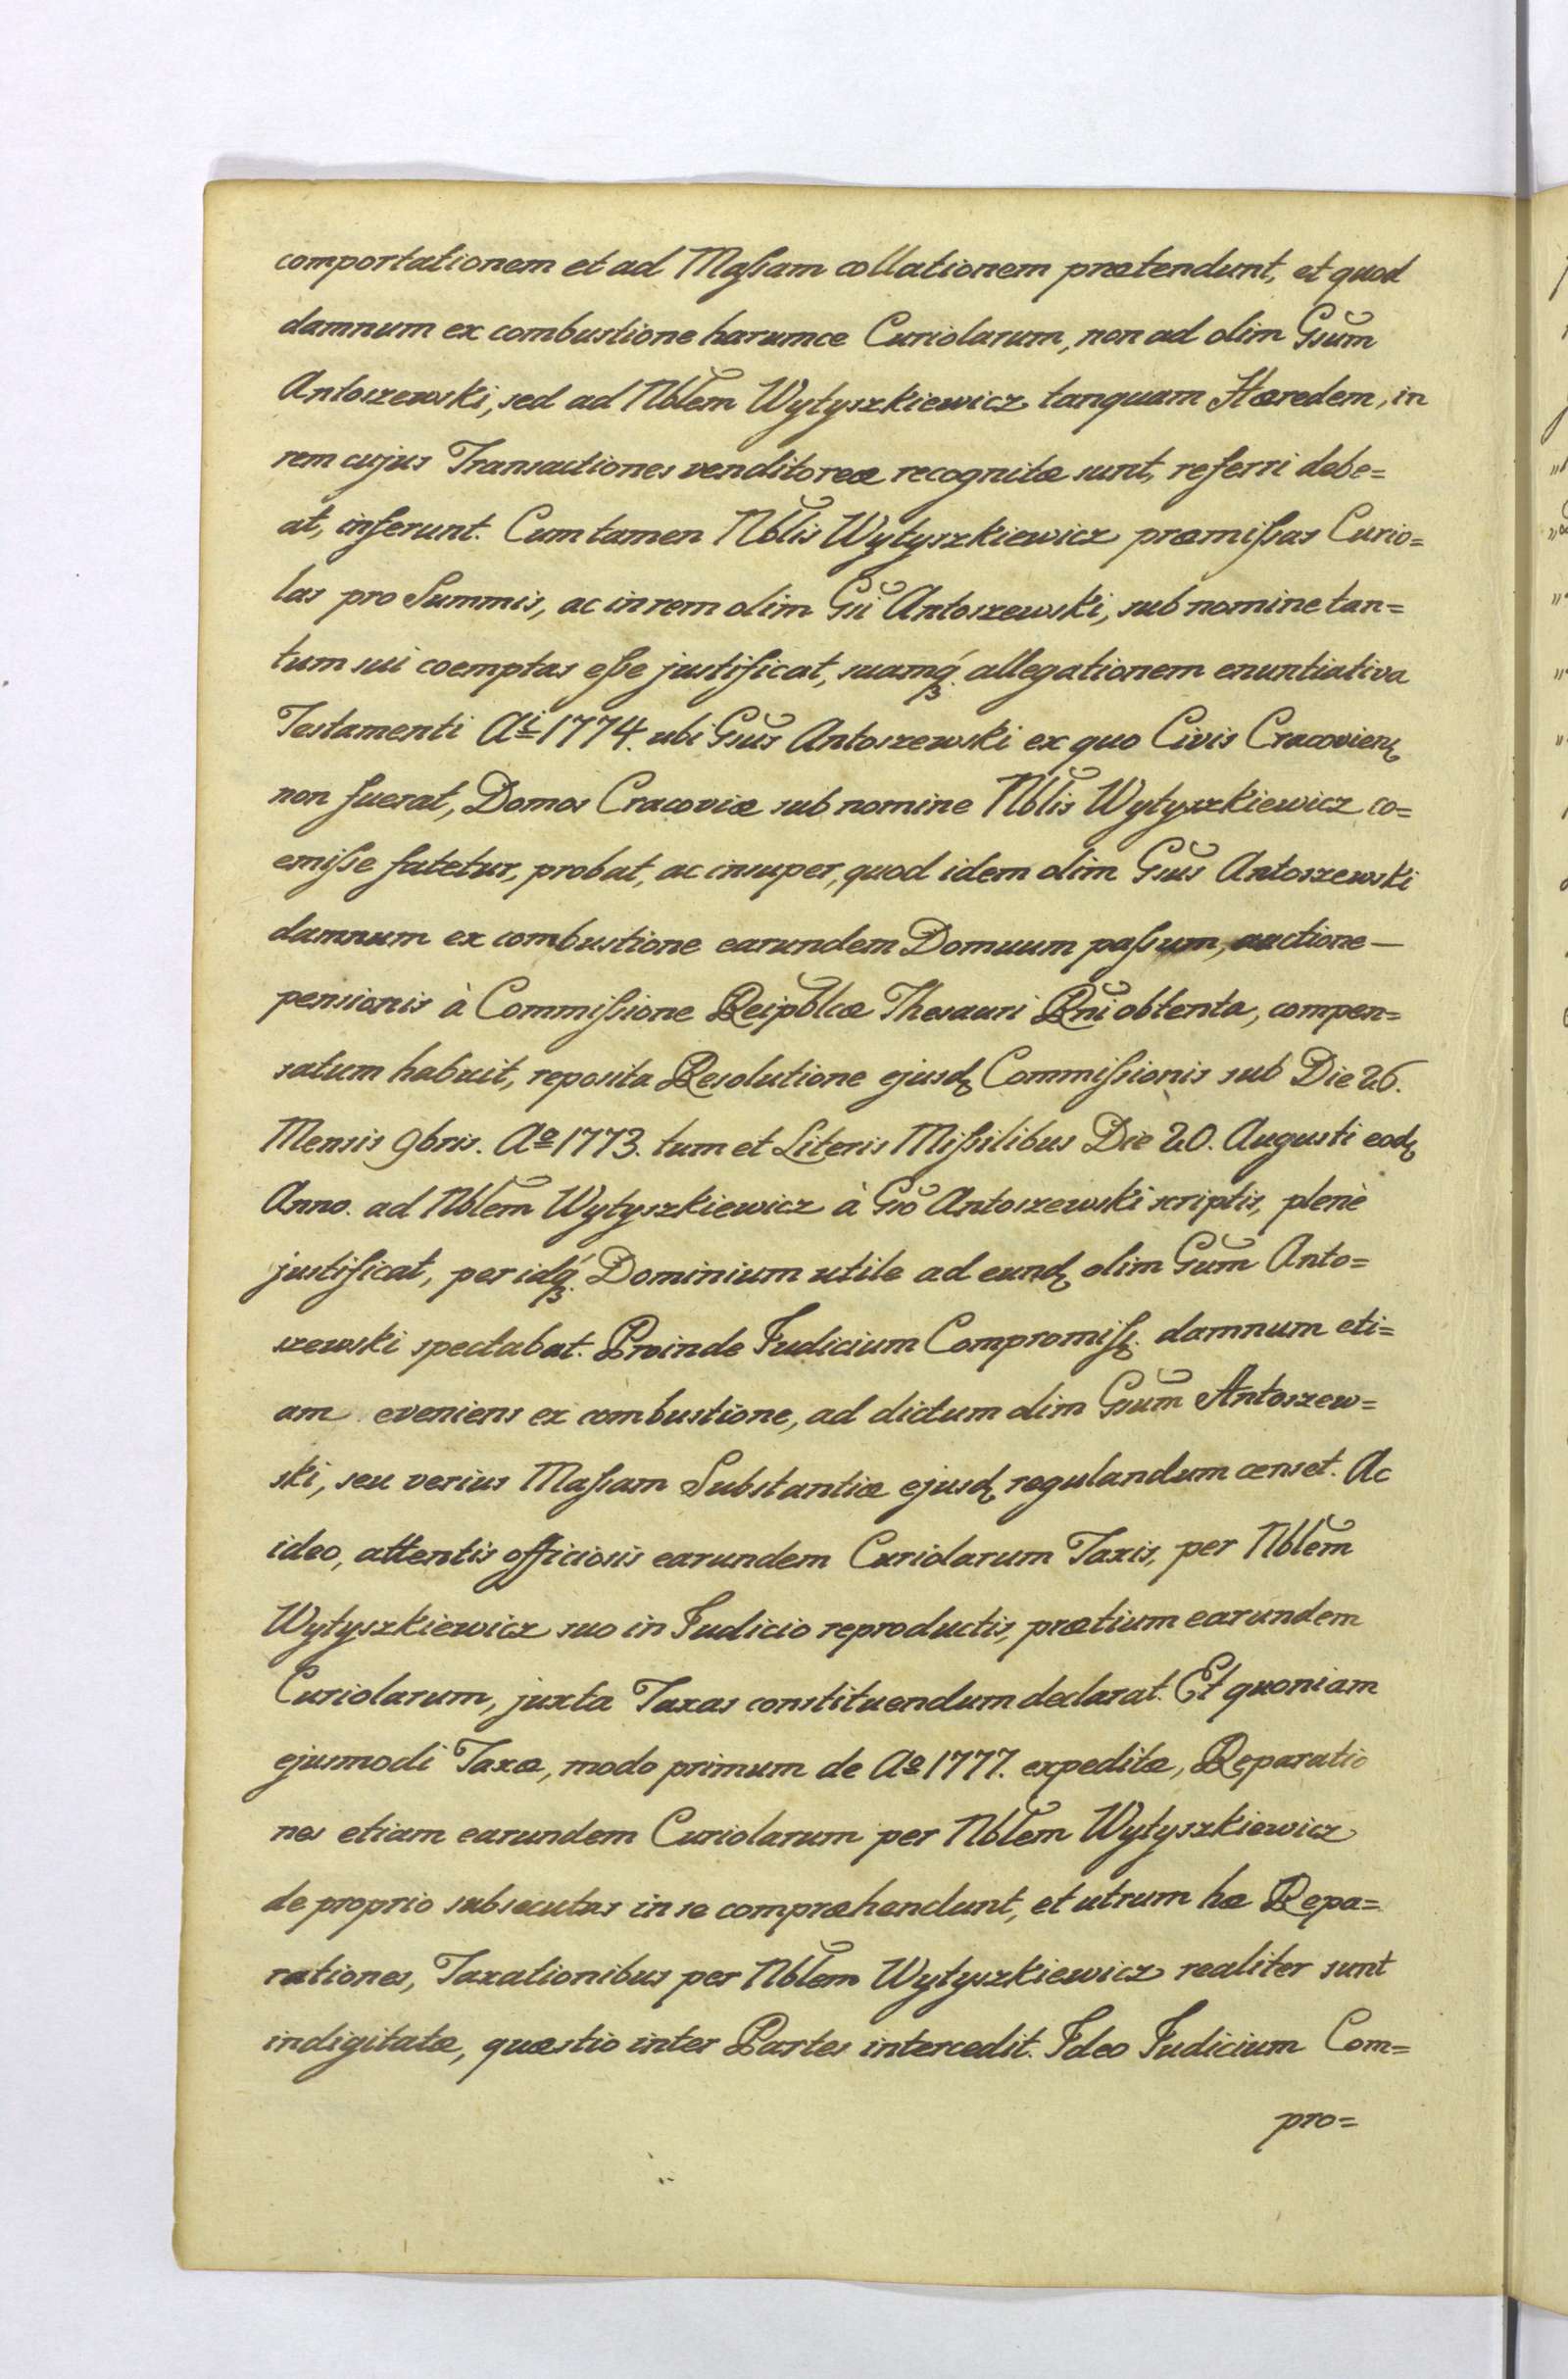 comportationem et ad Maſsam collationem prætendunt, et quod
damnum ex combustione harumce Curiolarum, non ad olim Gsum
Antoszewski, sed ad Nblem Wytyszkiewicz tanquam Hæredem, in
rem cujus Transactiones venditoreæ recognitæ sunt, referri debe=
at, inferunt. Cum tamen Nblis Wytyszkiewicz præmiſsas Curio=
las pro Summis, ac in rem olim Gsi Antoszewski, sub nomine tan=
tum sui coemptas eſse justificat, suamq́ꝫ. allegationem enuntiativa
Testamenti Aͥ 1774. ubi Gsus Antoszewski ex quo Civis Cracovienꝭ
non fuerat, Domos Cracoviæ sub nomine Nblis Wytyszkiewicz co=
emiſse fatetur, probat, ac insuper, quod idem olim Gsus Antoszewski
damnum ex combustione earundem Domuum paſsum, auctione—
pensionis à Commiſsione Reipblcæ Thesauri Rni obtenta, compen=
satum habuit, reposita Resolutione ejusdꝭ Commiſsionis sub Die 26.
Mensis 9bris. Aº 1773. tum et Literis Miſsilibus Die 20. Augusti eodꝭ
Anno. ad Nblem Wytyszkiewicz à Gso Antoszewski scriptis, plenè
justificat, per idq́ꝫ. Dominium utile ad eundꝭ olim Gsum Anto=
szewski spectabat. Proinde Judicium Compromiſsꝭ. damnum eti=
am eveniens ex combustione, ad dictum olim Gsum Antoszew=
ski, seu verius Maſsam Substantiæ ejusdꝭ regulandum censet. Ac
ideo, attentis officiosis earundem Curiolarum Taxis, per Nblem
Wytyszkiewicz suo in Judicio reproductis, prætium earundem
Curiolarum, juxta Taxas constituendum declarat. Et quoniam
ejusmodi Taxæ, modo primum de Aº 1777. expeditæ, Reparatio
nes etiam earundem Curiolarum per Nblem Wytyszkiewicz
de proprio subsecutas in se compræhendunt, et utrum hæ Repa=
rationes, Taxationibus per Nblem Wytyszkiewicz realiter sunt
indigitatæ, quæstio inter Partes intercedit. Ideo Judicium Com=
pro=